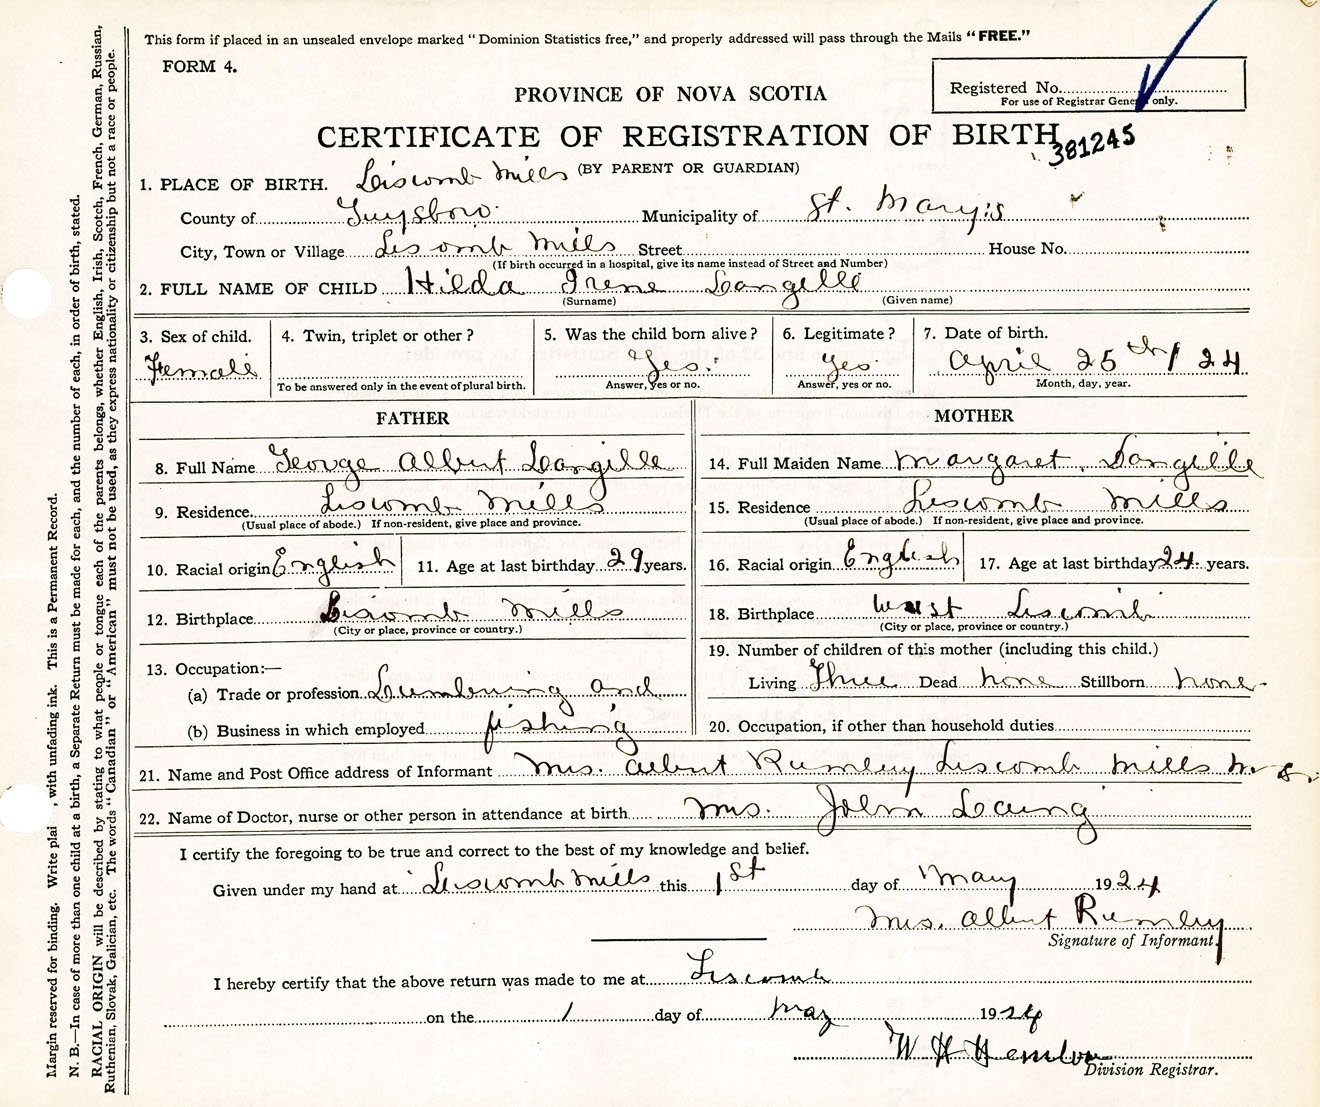 This form if placed in an unsealed envelope marked "Dominion Statistics free," and properly addressed will pass through the Mails "FREE."
FORM 4.
Registered No.
For use of Registrar General only.
PROVINCE OF NOVA SCOTIA
CERTIFICATE OF REGISTRATION OF BIRTH
381245
(BY PARENT OR GUARDIAN)
1. PLACE OF BIRTH. Liscomb Mills
County of Guysboro Municipality of St. Mary's
City, Town or Village Liscomb Mills Street House No.
(If birth occurred in a hospital, give its name instead of Street and Number)
2. FULL NAME OF CHILD Hilda Irene Langille
(Surname) (Given name)
3. Sex of child. 4. Twin, triplet or other? 5. Was the child born alive? 6. Legitimate? 7. Date of birth.
Female Yes. Yes April 25th / 24
To be answered only in the event of plural birth. Answer, yes or no. Answer, yes or no. Month, day, year.
FATHER MOTHER
8. Full Name George Albert Langille 14. Full Maiden Name Margaret. Langille
9. Residence Liscomb Mills 15. Residence Liscomb Mills
(Usual place of abode.) If non-resident, give place and province. (Usual place of abode.) If non-resident, give place and province.
10. Racial origin English 11. Age at last birthday 29 years. 16. Racial origin English 17. Age at last birthday 24 years.
12. Birthplace Liscomb Mills 18. Birthplace West Liscomb
(City or place, province or country.) (City or place, province or country.)
13. Occupation:— 19. Number of children of this mother (including this child.)
(a) Trade or profession Lumbering and Living Three Dead none Stillborn none
(b) Business in which employed fishing 20. Occupation, if other than household duties
21. Name and Post Office address of Informant Mrs. Albert Rumley Liscomb Mills N. S.
22. Name of Doctor, nurse or other person in attendance at birth Mrs. John Laing
I certify the foregoing to be true and correct to the best of my knowledge and belief.
Given under my hand at Liscomb Mills this 1st day of May 1924
Mrs. Albert Rumley
Signature of Informant.
I hereby certify that the above return was made to me at Liscomb
on the 1 day of May 1924
W H Hemlow
Division Registrar.
Margin reserved for binding. Write plai , with unfading ink. This is a Permanent Record.
N. B.—In case of more than one child at a birth, a Separate Return must be made for each, and the number of each, in order of birth, stated.
RACIAL ORIGIN will be described by stating to what people or tongue each of the parents belongs, whether English, Irish, Scotch, French, German, Russian,
Ruthenian, Slovak, Galician, etc. The words "Canadian" or "American" must not be used, as they express nationality or citizenship but not a race or people.